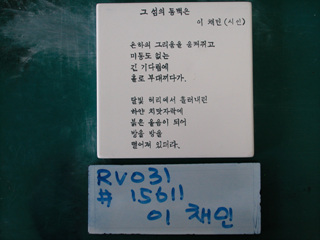 그 섬의 동백은
이 채인 (시인)
은하의 그리움을 움켜쥐고
미동도 없는
긴 기다림에
홀로 부대끼다가.
달빛 허리에서 흘러내린
하얀 치맛자락에
붉은 울음이 되어
방울 방울
떨어져
RV031
# 15611
이 채인